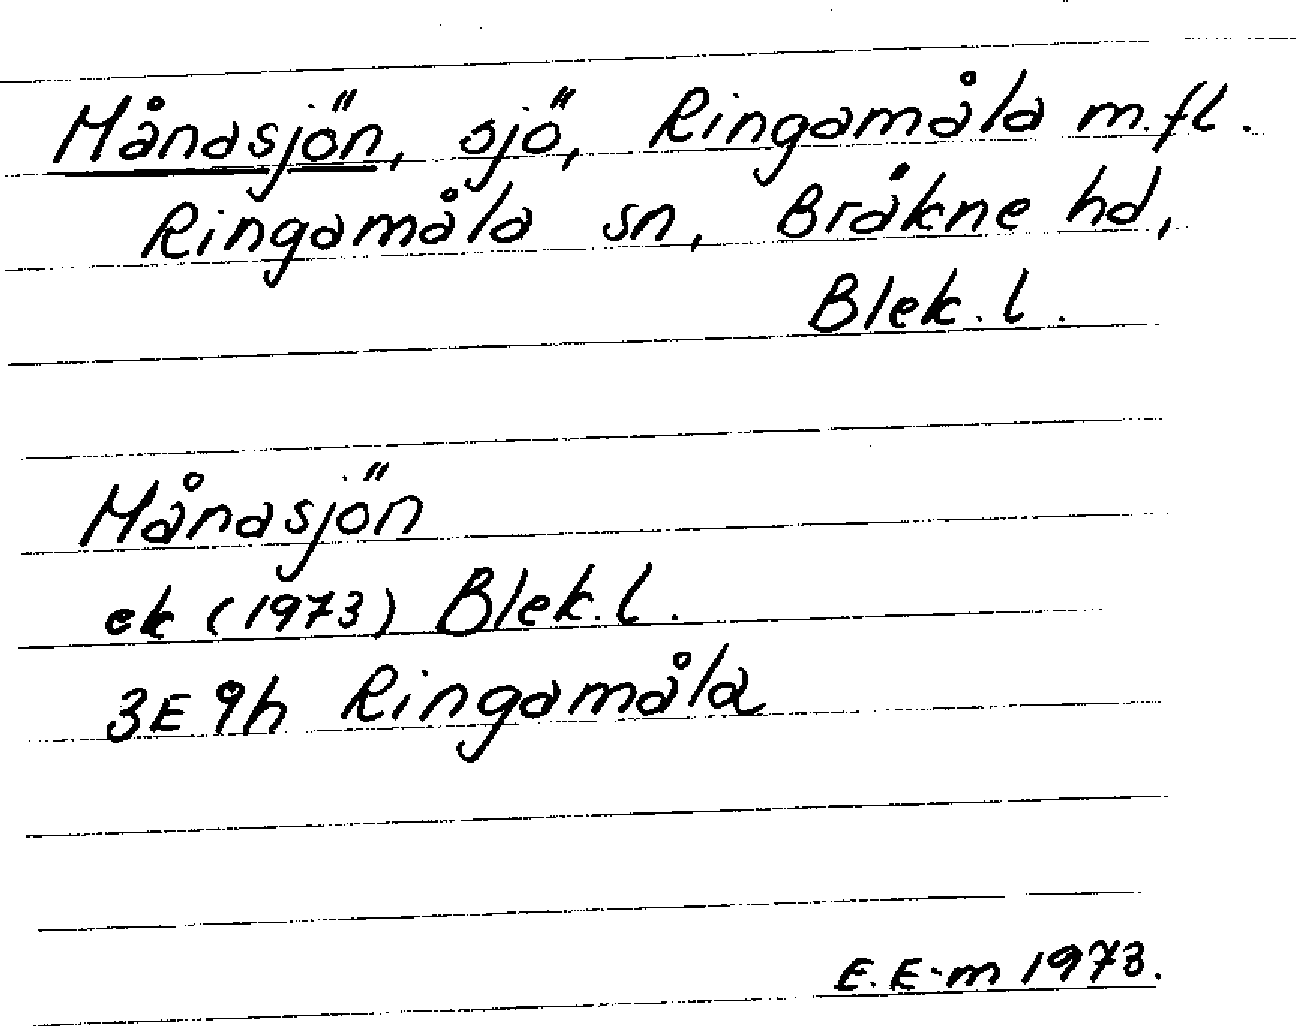 Månasjön, sjö, Ringamåla m.fl.
Ringamåla sn, Bräkne hd,
Blek.l.
Månasjön
ek (1973) Blek.l.
3E 9h Ringamåla
E.E-m 1973.